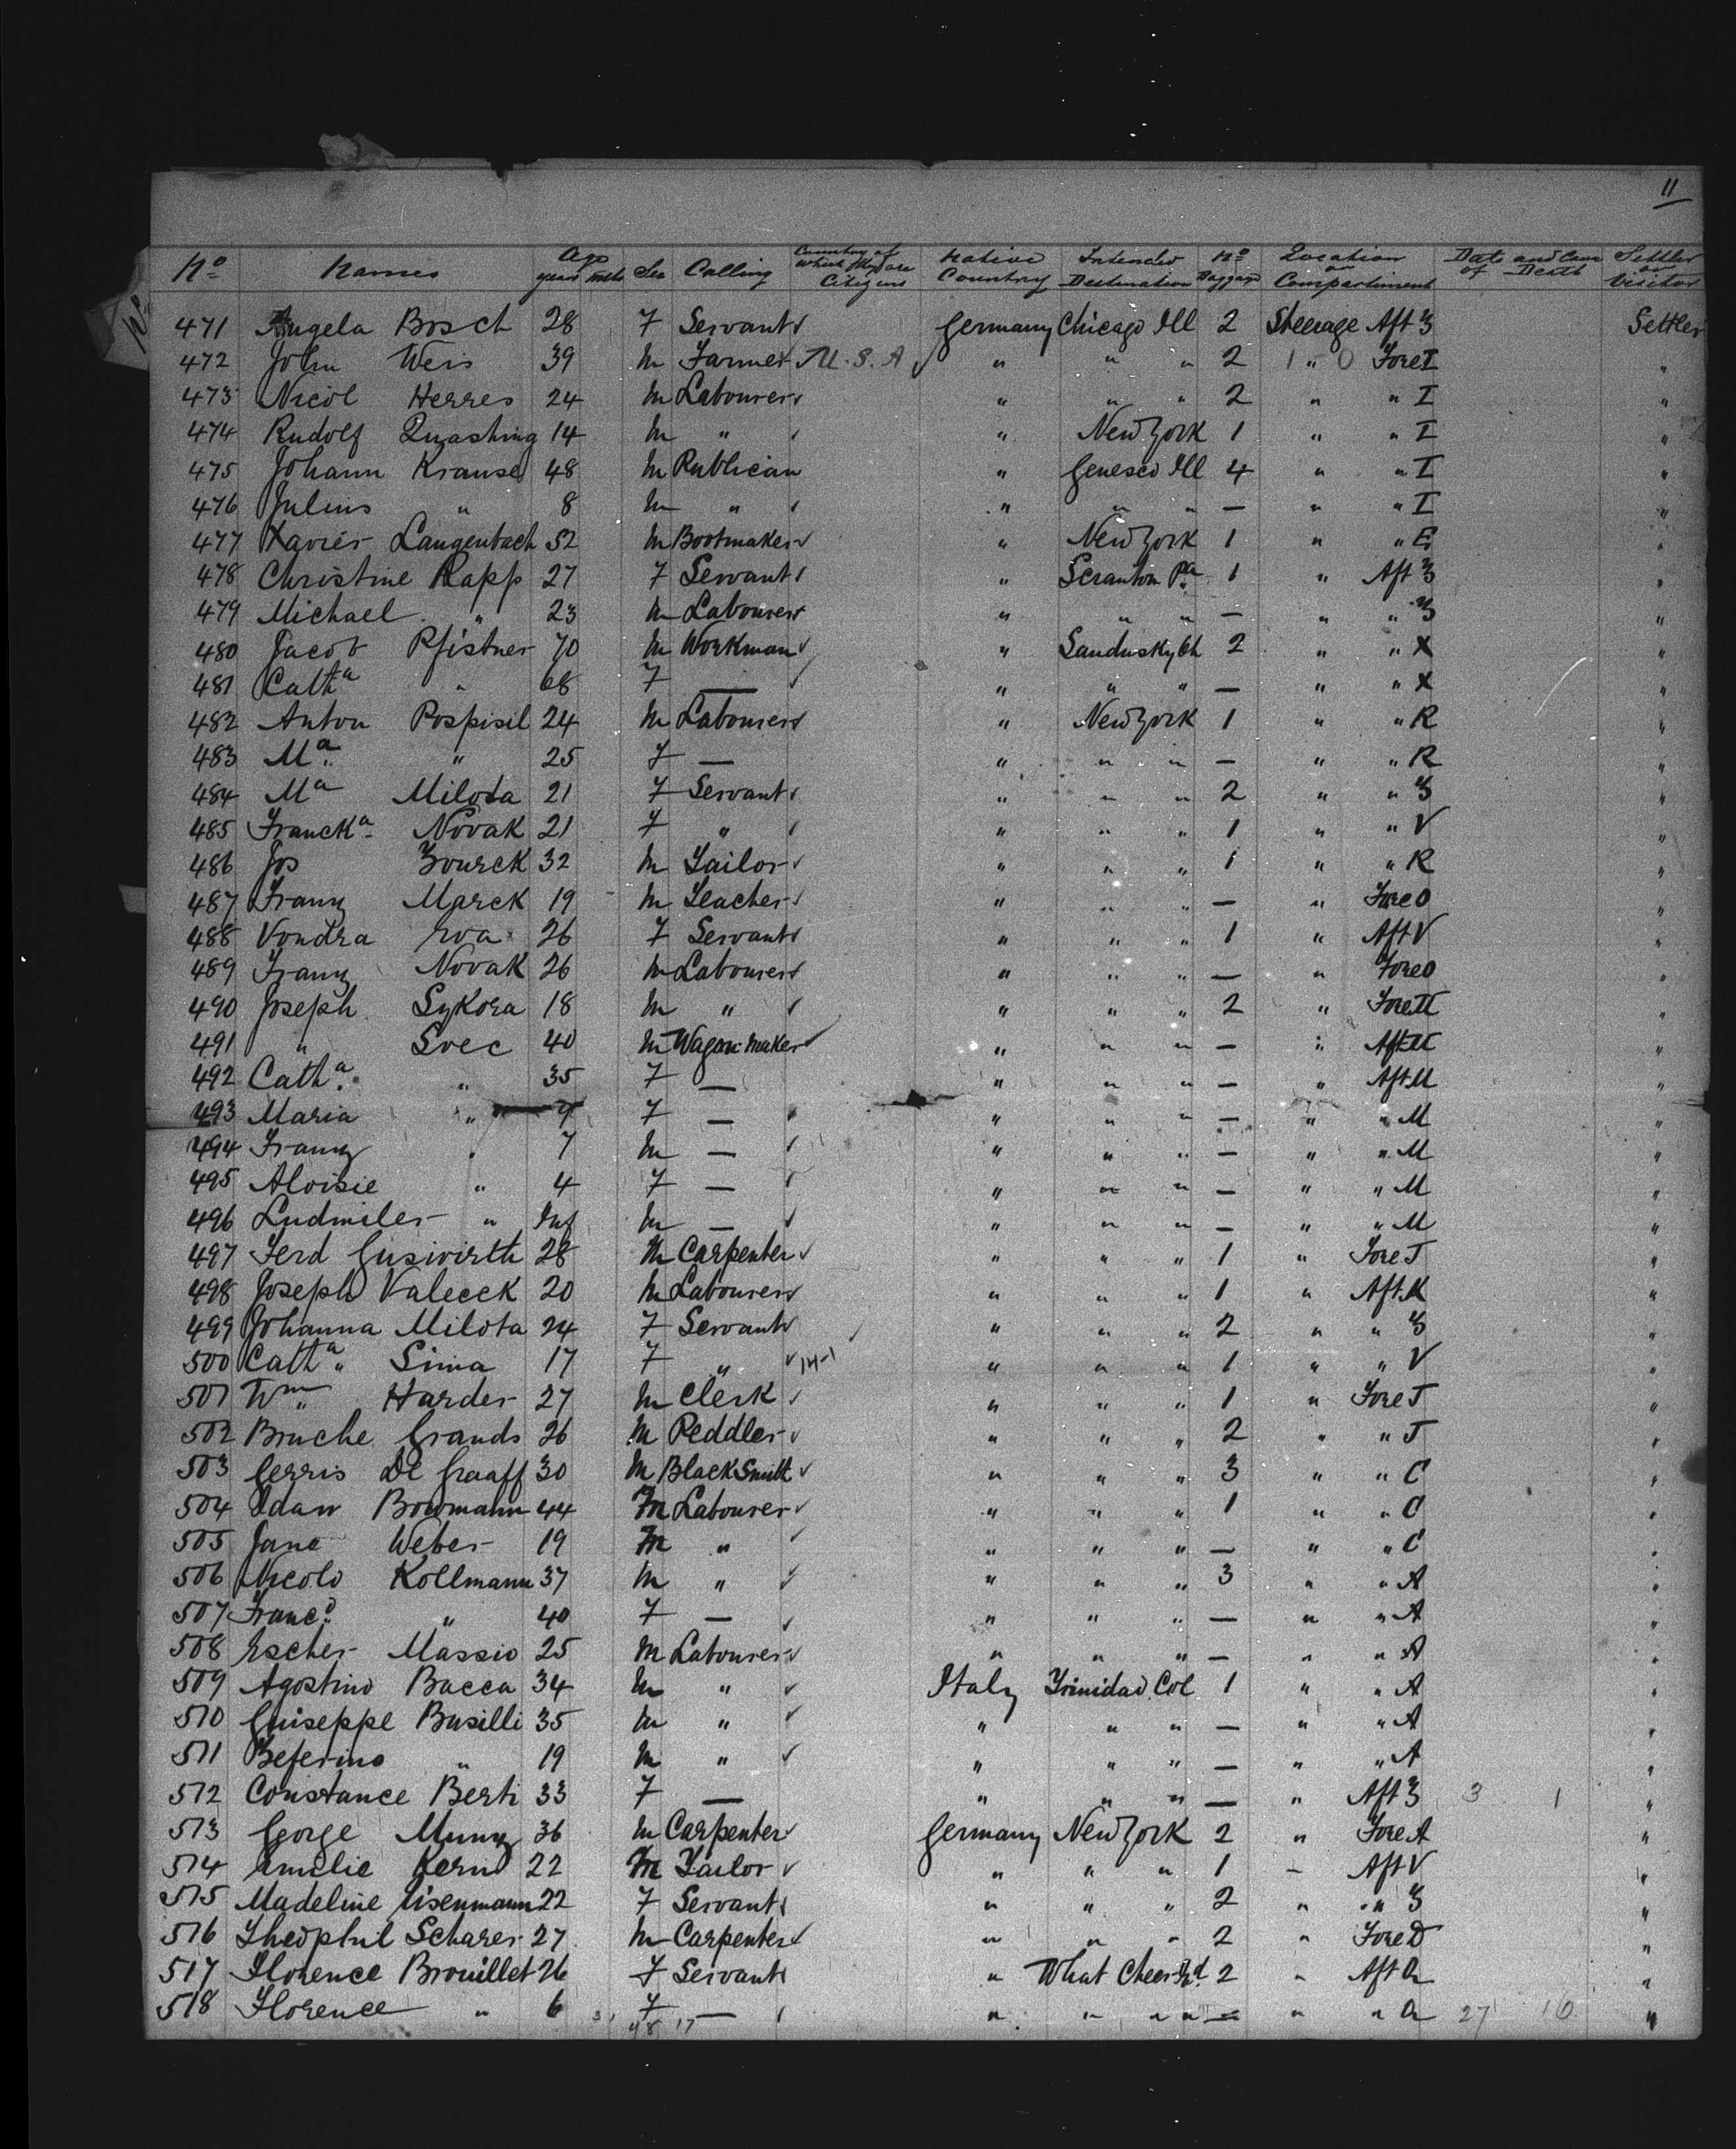 11
No Names Age years mths Sex Calling Country of which they are Citizens Native Country Intended Destination No Baggage Location or Compartiment Date and Cause of Death Settler or Visitor
471 Angela Bosch 28 F Servant Germany Chicago Ill 2 Steerage Aft Z Settler
472 John Weis 39 M Farmer U.S.A " " " 2 " Fore I "
473 Nicol Herres 24 M Labourer " " " 2 " " I "
474 Rudolf Quashing 14 M " " New York 1 " " I "
475 Johann Krause 48 M Publican " Geneseo Ill 4 " " I "
476 Julius " 8 M " " " " — " " I "
477 Xavier Langenbach 52 M Bootmaker " New York 1 " " E "
478 Christine Rapp 27 F Servant " Scranton Pa 1 " Aft Z "
479 Michael " 23 M Labourer " " " — " " Z "
480 Jacob Pfistner 70 M Workman " Sandusky Oh 2 " " X "
481 Catha " 68 F — " " " — " " X "
482 Anton Pospisil 24 M Labourer " New York 1 " " R "
483 Ma " 25 F — " " " — " " R "
484 Ma Milota 21 F Servant " " " 2 " " Z "
485 Francka Novak 21 F " " " " 1 " " V "
486 Jos Zourek 32 M Tailor " " " 1 " " R "
487 Franz Marek 19 M Teacher " " " — " Fore O "
488 Vondra Eva 26 F Servant " " " 1 " Aft V "
489 Franz Novak 26 M Labourer " " " — " Fore O "
490 Joseph Sykora 18 M " " " " 2 " Fore "
491 " Svec 40 M Wagon maker " " " — " Aft M "
492 Catha " 35 F — " " " — " Aft M "
493 Maria " 9 F — " " " — " " M "
494 Franz " 7 M — " " " — " " M "
495 Aloisie " 4 F — " " " — " " M "
496 Ludmiler " Inf M — " " " — " " M "
497 Ferd Guswirth 28 M Carpenter " " " 1 " Fore J "
498 Joseph Valecek 20 M Labourer " " " 1 " Aft K "
499 Johanna Milota 24 F Servant " " " 2 " " Z "
500 Catha Sima 17 F " 14-1 " " " 1 " " V "
501 Wm Harder 27 M Clerk " " " 1 " Fore J "
502 Bruche Grands 26 M Peddler " " " 2 " " J "
503 Gerris De Graaff 30 M BlackSmith " " " 3 " " C "
504 Bowmann 44 M Labourer " " " 1 " " C "
505 Jane Weber 19 M " " " " — " " C "
506 Nicolo Kollmann 37 M " " " " 3 " " A "
507 Franc " 40 F — " " " — " " A "
508 Escher Massio 25 M Labourer " " " — " " A "
509 Agostino Bacca 34 M " Italy Trinidad Col 1 " " A "
510 Guiseppe Busilli 35 M " " " " — " " A "
511 Zeferino " 19 M " " " " — " " A "
512 Constance Berti 33 F — " " " — " Aft Z 3 1 "
513 Gorge Munz 36 M Carpenter Germany New York 2 " Fore A "
514 Emilie Kern 22 M Tailor " " " 1 " Aft V "
515 Madeline Eisenmann 22 F Servant " " " 2 " " Z "
516 Theophil Scharer 27 M Carpenter " " " 2 " Fore D "
517 Florence Brouillet 26 F Servant " What Cheer 2 " Aft Q "
518 Florence " 6 F — " " " " — " " Q 27 16 "
48 17